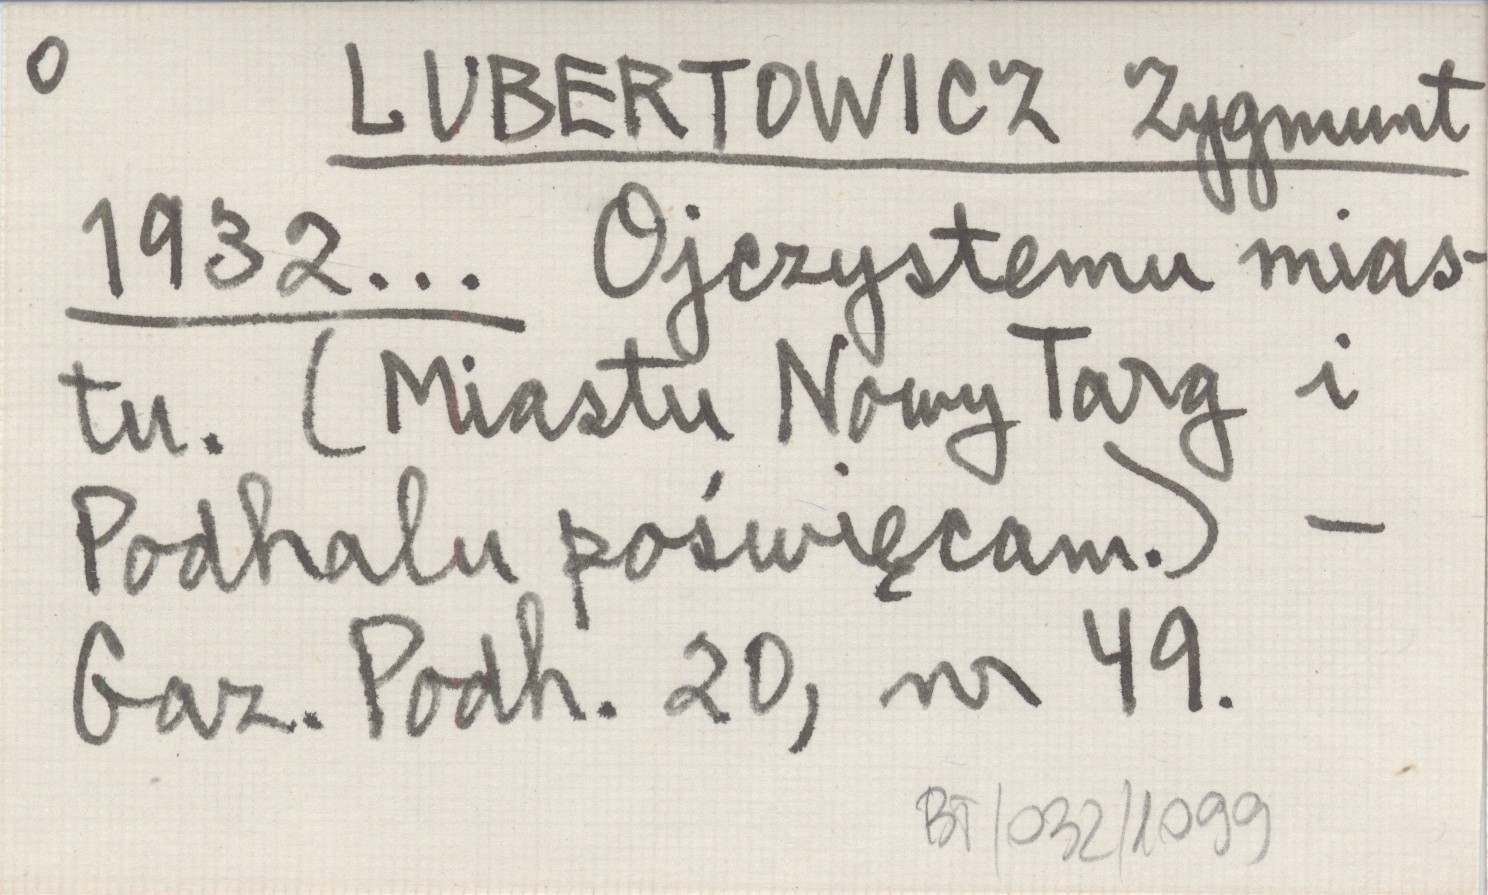 O LUBERTOWICZ Zygmunt
1932... Ojczystemu mias-
tu. (Miastu Nowy Targ i
Podhalu poświęcam.) –
Gaz. Podh. 20, nr 49.
BT/032/1099